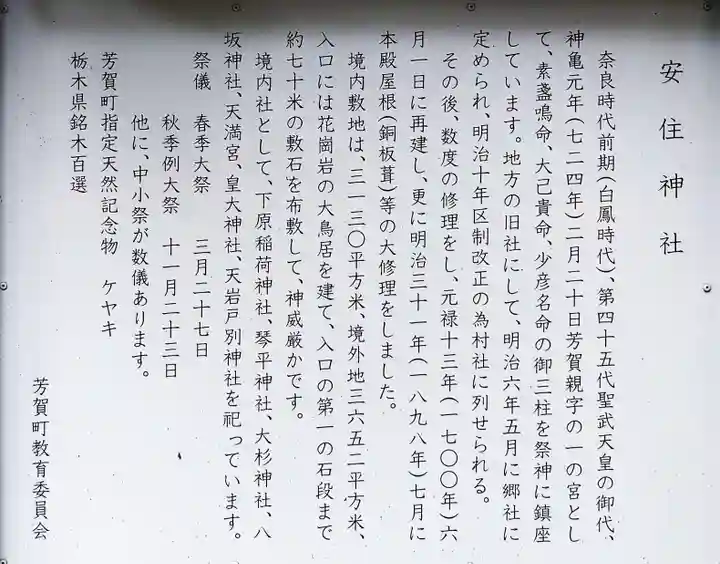 安住神社
奈良時代前期(白鳳時代)、第四十五代聖武天皇の御代、
神亀元年(七二四年)二月二十日芳賀親字の一の宮とし
て、素盞鳴命、大己貴命、少彦名命の御三柱を祭神に鎮座
しています。地方の旧社にして、明治六年五月に郷社に
定められ、明治十年区制改正の為村社に列せられる。
その後、数度の修理をし、元禄十三年(一七〇〇年)六
月一日に再建し、更に明治三十一年(一八九八年)七月に
本殿屋根(銅板葺)等の大修理をしました。
境内敷地は、三一三〇平方米、境外地三六五二平方米、
入口には花崗岩の大鳥居を建て、入口の第一の石段まで
約七十米の敷石を布敷して、神威厳かです。
境内社として、下原稲荷神社、琴平神社、大杉神社、八
坂神社、天満宮、皇大神社、天岩戸別神社を祀っています。
祭儀 春季大祭 三月二十七日
秋季例大祭 十一月二十三日
他に、中小祭が数儀あります。
芳賀町指定天然記念物 ケヤキ
栃木県銘木百選
芳賀町教育委員会